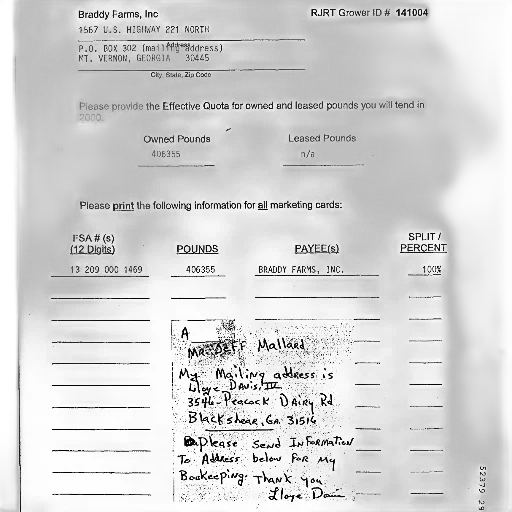 Braddy Farms, Inc
RJRT Grower ID # 141004
1567 U.S. HIGHWAY 221 NORTH
Address
P.O. BOX 302 (mailing address)
MT. VERNON, GEORGIA 30445
City, State, Zip Code
Please provide the Effective Quota for owned and leased pounds you will tend in
2000.
Owned Pounds Leased Pounds
406355 n/a
Please print the following information for all marketing cards:
FSA # (s)
(12 Digits) POUNDS PAYEE(s) SPLIT / PERCENT
13 209 000 1469 406355 BRADDY FARMS, INC. 100%
A
Mr. Jeff Mallard
My Mailing address is
Lloye Davis, IV
3546 - Peacock Dairy Rd
Blackshear, GA. 31516
Please Send Information
To Address below For My
Bookeeping. Thank you
Lloye Davis
52379 29